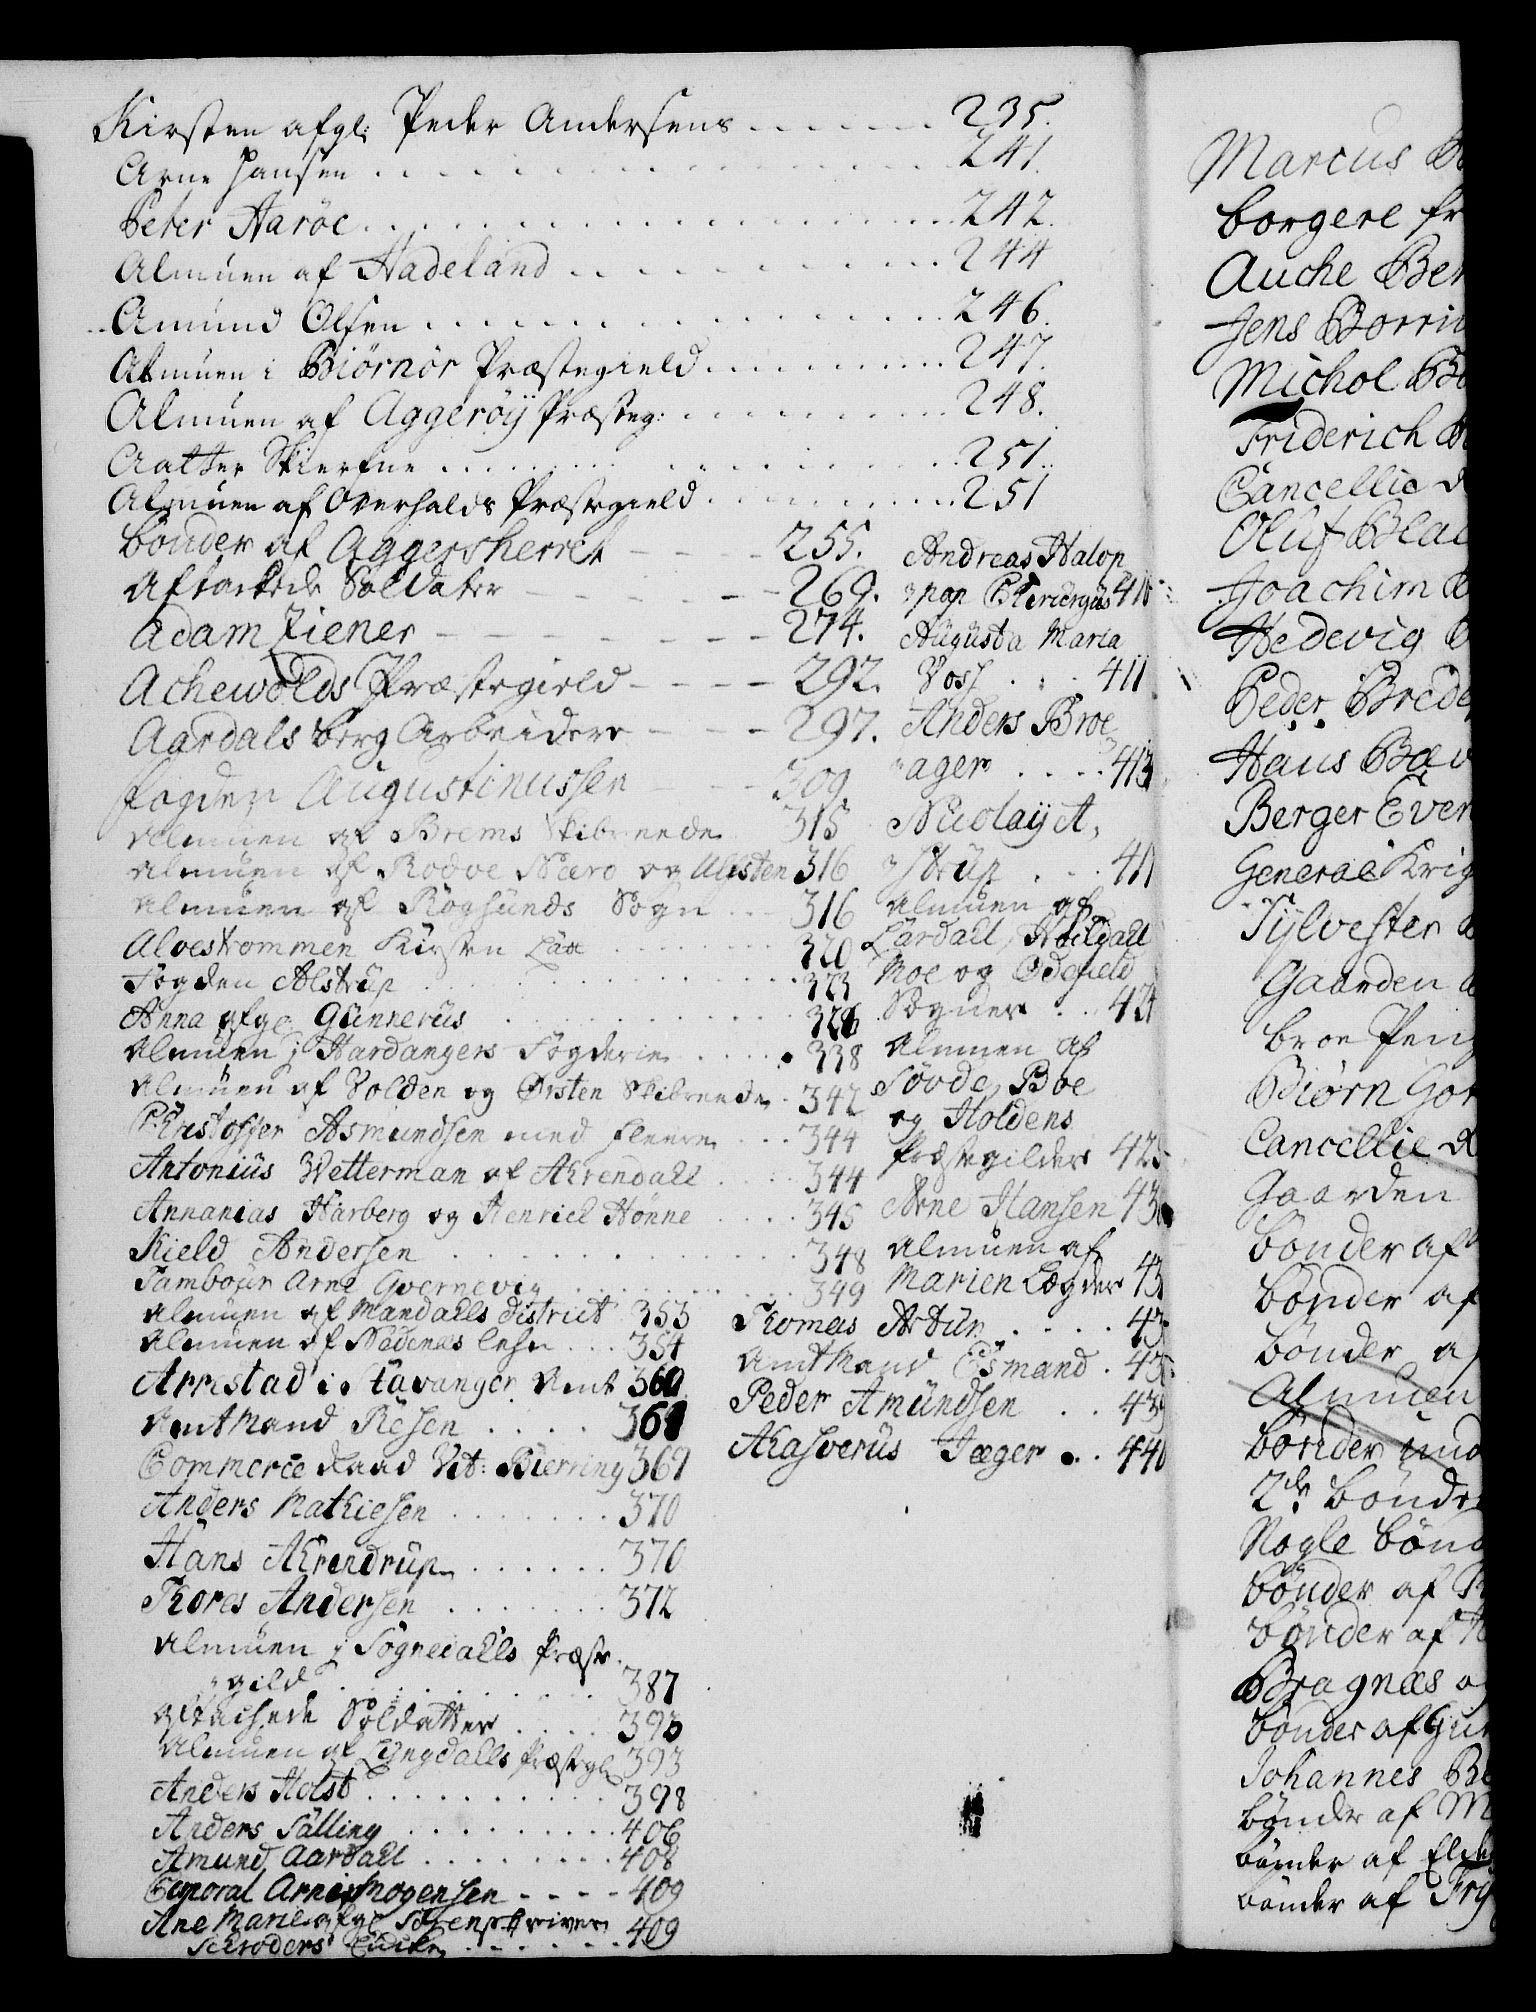 Kirsten afgl: Peder Andersens . . . . . . 235.
Arne Hansen . . . . . . . . . . . . 241.
Peter Haröe . . . . . . . . . . . . 242.
Almuen af Hadeland . . . . . . . . . 244
Amund Olsen . . . . . . . . . . . . 246.
Almuen i Biörnör Præstegield . . . . . . . . 247.
Almuen af Aggeröÿ Præsteg: . . . . . . . . 248.
Aatter Skierfne . . . . . . . . . . . 251.
Almuen af Overhalds Præstegield . . . . . . 251
bönder af Aggersherret - - - - 255.
Aftackede Soldater - - - - - 269.
Adam Ziener - - - - - - - 274.
Achewolds Præstegield - - - - 292.
Aardals berg Arbeidere - - - 297.
fogden Augustinussen - - - 309
Almuen af Brems Skibreede 315
Almuen af Rodve Næro og Alfsten 316
Almuen af Rögsunds Sogn . . 316
Alvestrommen Kirsten . . . . . 320
Fogden Alstrüp . . . . . . . . 323
Anna afgl. Günnerüs . . . . . . . . 326
Almuen i Hardangers Fogderie . . . . . 338
Almuen af Volden og Örsten Skibreede . 342
Christoffer Asmundsen med fleere . . . 344
Antoniüs Wetterman af Ahrendall . . . . 344
Annanias Harberg og Henrich Hönne . . . . 345
Kield Andersen . . . . . . . . . 348
Tambour Arne Gvernevig . . . . . . . 349
Almuen af Mandalls District 353
Almuen af Nedenæs lehn . . . 354
Arrestad i Stavanger Amt 360
Amtmand Resen . . . . 361
Commerce Raad Vit: Bierring 369
Anders Mathiesen . . . . . . . 370
Hans Ahrendrup . . . . . . 370
Thores Andersen . . . . . . . 372
Almuen i Sognedalls Præste-
gield . . . . . . . . . 387
Aftachede Soldatter . . . . 393
Almuen af Lyngdalls Præstegl 393
Anders Holst . . . . . . . . . 398
Anders Sälling . . . . . . . . . 406
Amund Aardall . . . . . . . . 408
Corporal Arne Mogensen - - - - 409
Ane Marie afgl Sorenschriver
Schroders Encke . . . . . . . 409
Andreas Halop
pop Chierurgus 410
Augusta Maria
Voss . . . . 411
Anders Broe
ager . . . . 413
Nicolaÿ A,
strüp . . . 417
Almuen af
Lardall, Hvidall
Moe og
Sogner . . 424
Almuen af
Sövde, Boe
og Holdens
Præstegilder 425
Arne Hansen 43
Almuen af
Marien Lægder 43
Thomas Arbün . . . . . 43
Amtmand Esmand . 43
Peder Amündsen . . 439
Ahasverüs Jæger . . 440
Marcus B
borgere fr
Auche Ber
Jens Borri
Michol B
Friderich
Cancellie
Oluf Bla
Joachim
Hedevig
Peder Brede
Hans Bav
Berger Even
General Krig
Sylvester
Gaarden
broe Peng
Biörn Gor
Cancellie
Gaarden
bönder af
bönder af
bönder af
Almuen
bönder und
2de bönde
Nogle bönd
bönder af
bönder af
Bragnæs og
bönder af Gu
Johannes Be
bönder af M
bönder af
bönder af Fry